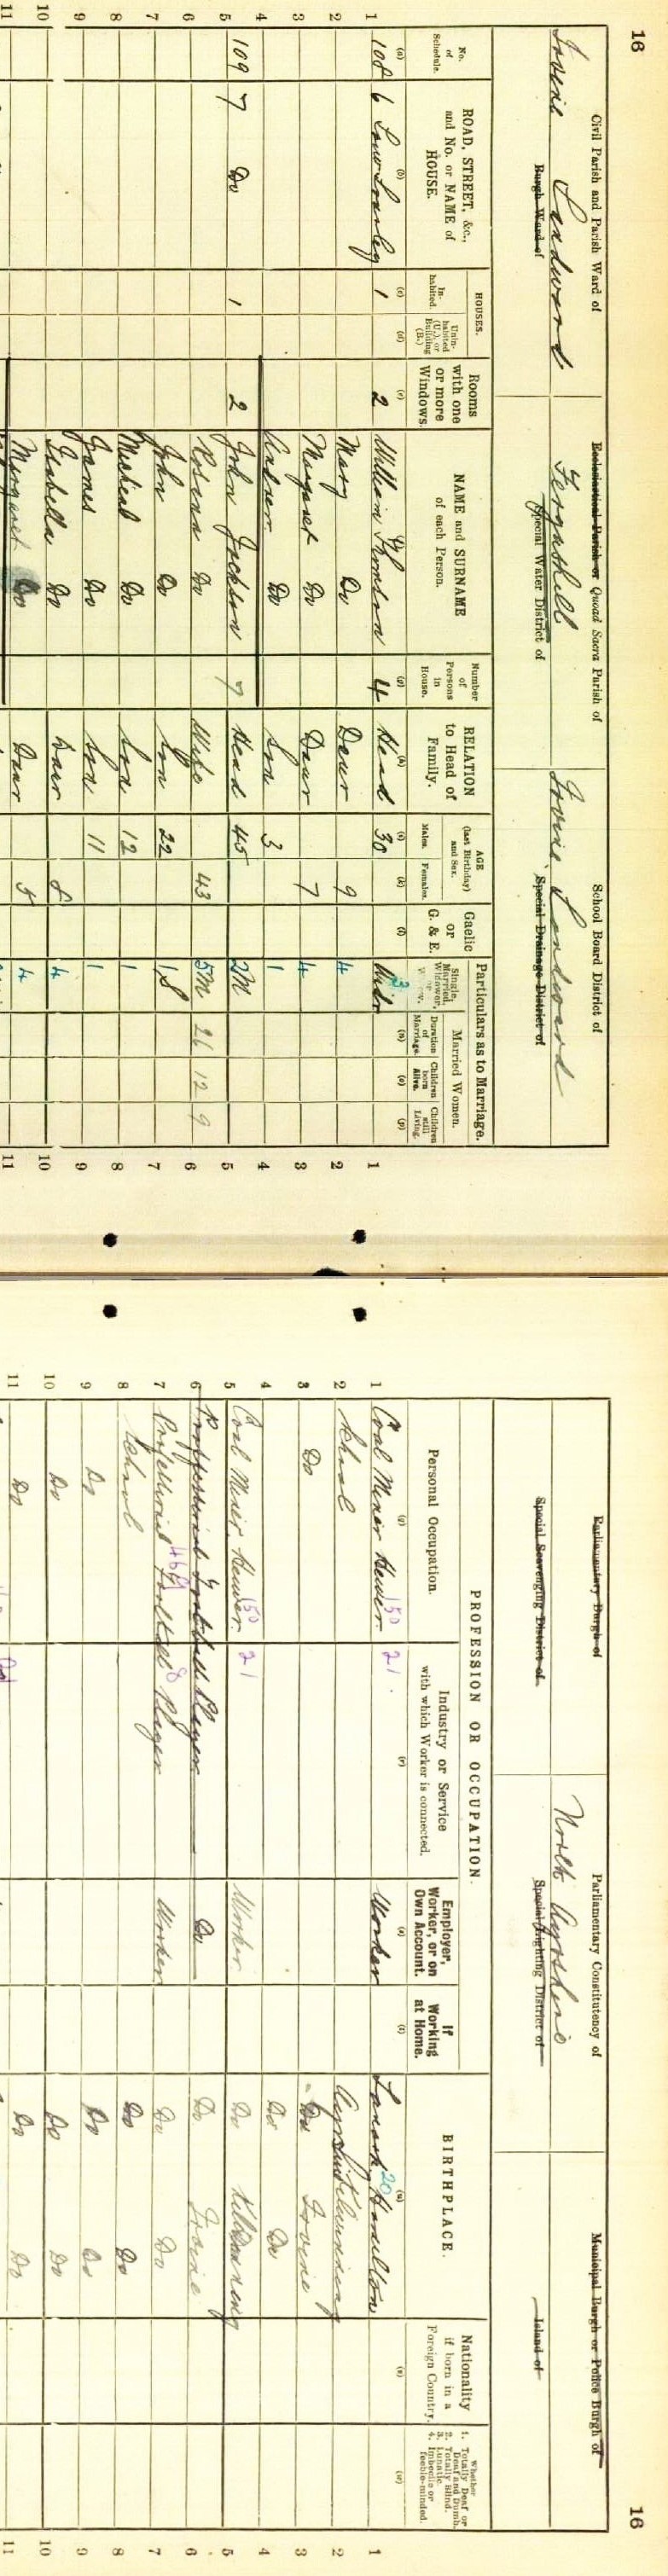 16
Civil Parish and Parish Ward of
Irvine Landward
Burgh Ward of
Ecclesiastical Parish or Quoad Sacra Parish of
Fergushill
Special Water District of
School Board District of
Irvine Landward
Special Drainage District of
No. of Schedule.
ROAD, STREET, &c., and No. or NAME of HOUSE.
HOUSES.
Inhabited.
Uninhabited (U.), or Building (B.)
Rooms with one or more Windows.
NAME and SURNAME of each Person.
Number of Persons in House.
RELATION to Head of Family.
AGE (last Birthday) and Sex.
Males. Females.
Gaelic or G. & E.
Particulars as to Marriage.
Single, Married, Widower,
Married Women.
Duration of Marriage.
Children born Alive.
Children still Living.
(a) (b) (c) (d) (e) (g) (h) (i) (k) (l) (n) (o) (p)
1 108 6 1 2 William Thomson 4 Head 30 Widr 1
2 Mary Do Daur 9 4 2
3 Margaret Do Daur 7 4 3
4 Andrew Do Son 3 1 4
5 109 7 Do 1 2 John Jackson 7 Head 45 2M 5
6 Rosina Do Wife 43 5M 26 12 9 6
7 John Do Son 22 1S 7
8 Micheal Do Son 12 1 8
9 James Do Son 11 1 9
10 Isabella Do Daur 8 4 10
11 Margaret Do Daur 5 4 11
Parliamentary Burgh of
Special Scavenging District of
Parliamentary Constitutency of
North Ayrshire
Special Lighting District of
Municipal Burgh or Police Burgh of
Island of
16
PROFESSION OR OCCUPATION.
Personal Occupation.
Industry or Service with which Worker is connected.
Employer, Worker, or on Own Account.
If Working at Home.
BIRTHPLACE.
Nationality if born in a Foreign Country.
Whether
1. Totally Deaf or Deaf and Dumb.
2. Totally Blind.
3. Lunatic.
4. Imbecile or feeble-minded.
(q) (r) (s) (t) (u) (v) (w)
1 Coal Miner Hewer 150 21 Worker Lanark 20 Hamilton 1
2 School Ayrshire Kilwinning 2
3 Do Do Irvine 3
4 Do Do 4
5 Coal Miner Hewer 150 21 Worker Do Kilwinning 5
6 Proffessional Football Player Do Do Irvine 6
7 Proffessional Football Player Worker Do Do 7
8 School Do Do 8
9 Do Do Do 9
10 Do Do Do 10
11 Do Do Do 11